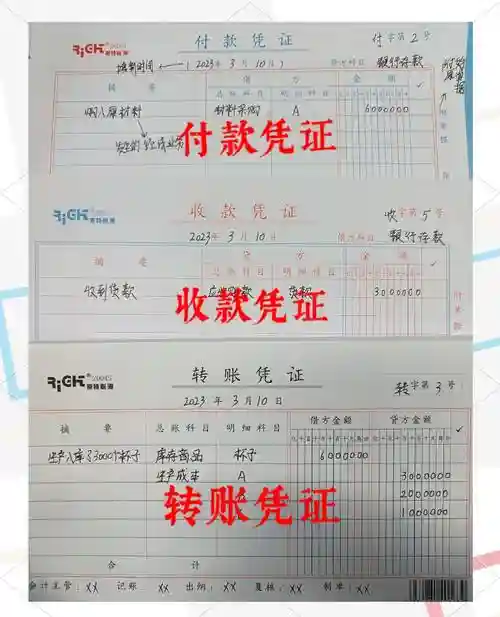 RiCH
付款凭证 付字第2号
编制时间 ← (2023年3月10日) 贷方科目 银行存款
摘要 借方 金额 ✓
总账科目 明细科目
购入原材料 材料采购 A 6000000
发生的经济业务
付款凭证
RiCH 莱特账簿
收款凭证 收字第5号
2023年3月10日 借方科目 银行存款
摘要 贷方 金额 ✓
总账科目 明细科目
收到货款 货款 3000000
收款凭证
RiCH 莱特账簿
转账凭证 转字第3号
2023年3月10日
摘要 总账科目 明细科目 借方金额 贷方金额 ✓
生产入库了3000个杯子 库存商品 杯子 6000000
生产成本 A 3000000
2000000
1000000
转账凭证
合计
会计主管：XX 记账 XX 出纳：XX 复核：XX 制单：XX